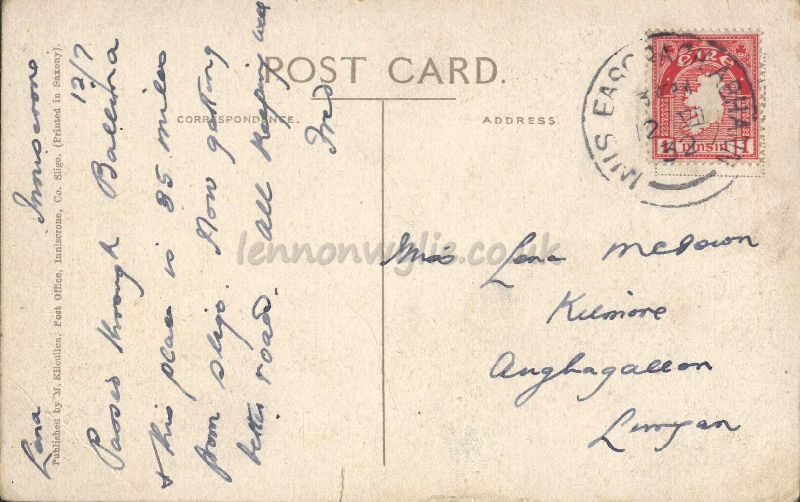 POST CARD.
CORRESPONDENCE.
ADDRESS.
Published by M. Kilcullen, Post Office, Inniscrone, Co. Sligo. (Printed in Saxony).
Lena Inniscrone
12/7
Passed through Ballina
& this place is 35 miles
from Sligo. Now getting
better roads. All keeping well
Fred
Miss Lena McKown
Kilmore
Aughagallon
Lurgan
INIS EASCRACH ABHANN
12
32
éIRE
1 PINSIN 1
lennonwylie.co.uk